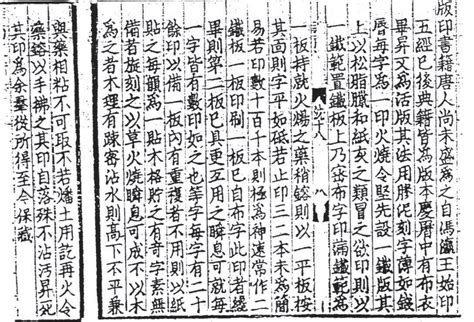 版印書籍唐人尚未盛為之自馮瀛王始印
五經已後典籍皆為版本慶曆中有布衣
畢昇又為活版其法用膠泥刻字薄如錢
唇每字為一印火燒令堅先設一鐵版其
上以松脂臘和紙灰之類冒之欲印則以
一鐵範置鐵板上乃密布字印滿鐵範為
一板持就火煬之藥稍鎔則以一平板按
其面則字平如砥若止印三二本未為簡
易若印數十百千本則極為神速常作二
鐵板一板印刷一板已自布字此印者纔
畢則第二板已具更互用之瞬息可就每
一字皆有數印如之也等字每字有二十
餘印以備一板內有重複者不用則以紙
貼之每韻為一貼木格貯之有奇字素無
備者旋刻之以草火燒瞬息可成不以木
為之者木理有踈密沾水則高下不平兼
與藥相粘不可取不若燔土用訖再火令
藥鎔以手拂之其印自落殊不沾汚昇死
其印為余羣從所得至今保藏